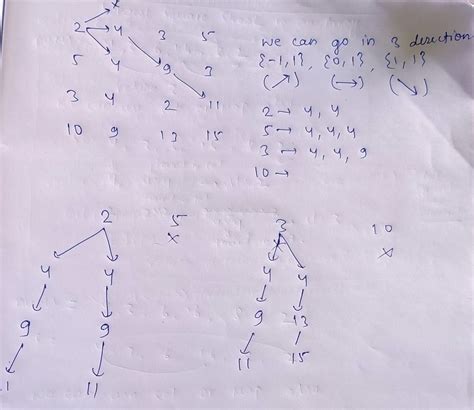 x
2 4 3 5
5 4 9 3
3 4 2 11
10 9 13 15
we can go in 3 direction
{-1,1}, {0,1}, {1,1}
(↗) (→) (↘)
2 → 4, 4
5 → 4, 4, 4
3 → 4, 4, 9
10 →
2 5 3 10
x x
4 4 4 4
9 9 9 13
11 11 11 15